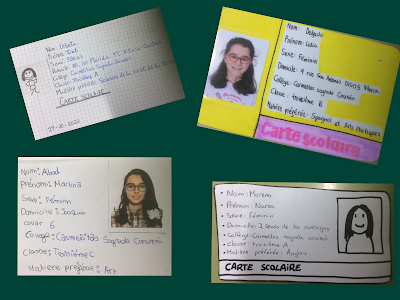 Nom:
Prénom:
Sexe: Féminin
Collège Carmelitas Sagrado Corazón
Classe: Troisième A
Matière préférée: Sciences de la vie et de la
CARTE SCOLAIRE
Nom: Delgado
Prénom: Lucía
Sexe: Féminin
Domicile: 9 rue San Antonio 01005 Vitoria
Collège: Carmelitas sagrado corazón
Classe: troisième B
Matière préférée: Espagnol et Arts plastiques
Carte scolaire
Nom: Abad
prénom: Martina
Sexe: Féminin
Domicile: Joaquin
Collège: Carmelitas Sagrado Corazón
Classe: Troisième C
Matière préférée: Art
• Nom: Moreno
• Prénom: Naroa
• Sexe: féminin
• Domicile: 3, senda de
• Collège: Carmelitas sagrado corazón
• Classe: troisième A
• Matière préférée: Anglais
CARTE SCOLAIRE